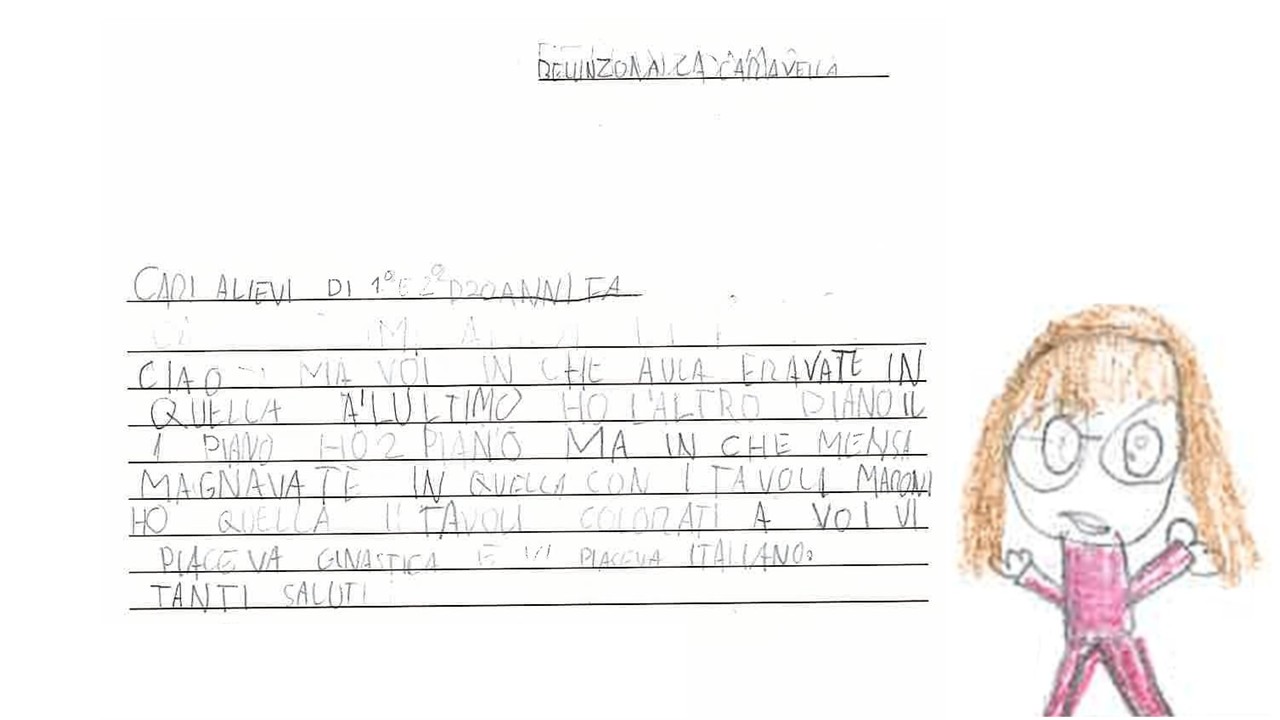 CARI ALIEVI DI 1° E 2° D 20 ANNI FA
CIAO MA VOI IN CHE AULA ERAVATE IN
QUELLA A'LULTIMO HO L'ALTRO PIANO IL
1 PIANO HO 2 PIANO MA IN CHE MENSA
MAGNAVATE IN QUELLA CON I TAVOLI MARONI
HO QUELLA TAVOLI COLORATI A VOI VI
PIACEVA GINASTICA E VI PIACEVA ITALIANO.
TANTI SALUTI